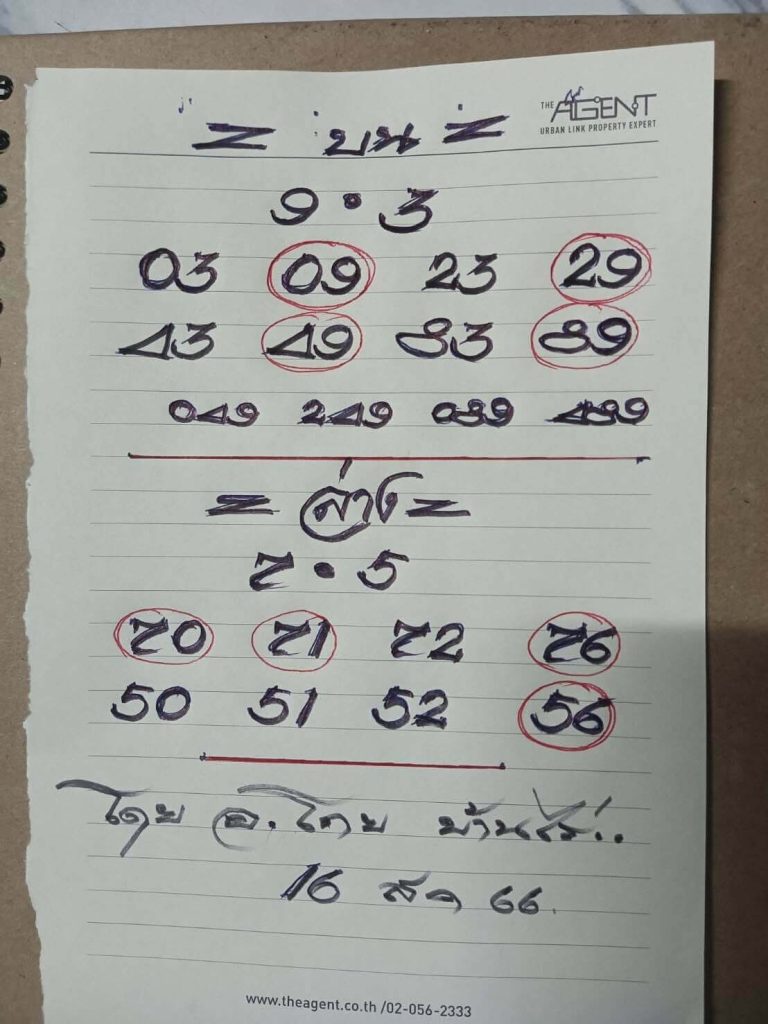 THE AGENT
URBAN LINK PROPERTY EXPERT
= บน =
9 • 3
03 09 23 29
43 49 83 89
049 249 089 489
= ล่าง =
7 • 5
70 71 72 76
50 51 52 56
โดย อ. โทย บ้านไร่..
16 สค 66.
www.theagent.co.th /02-056-2333